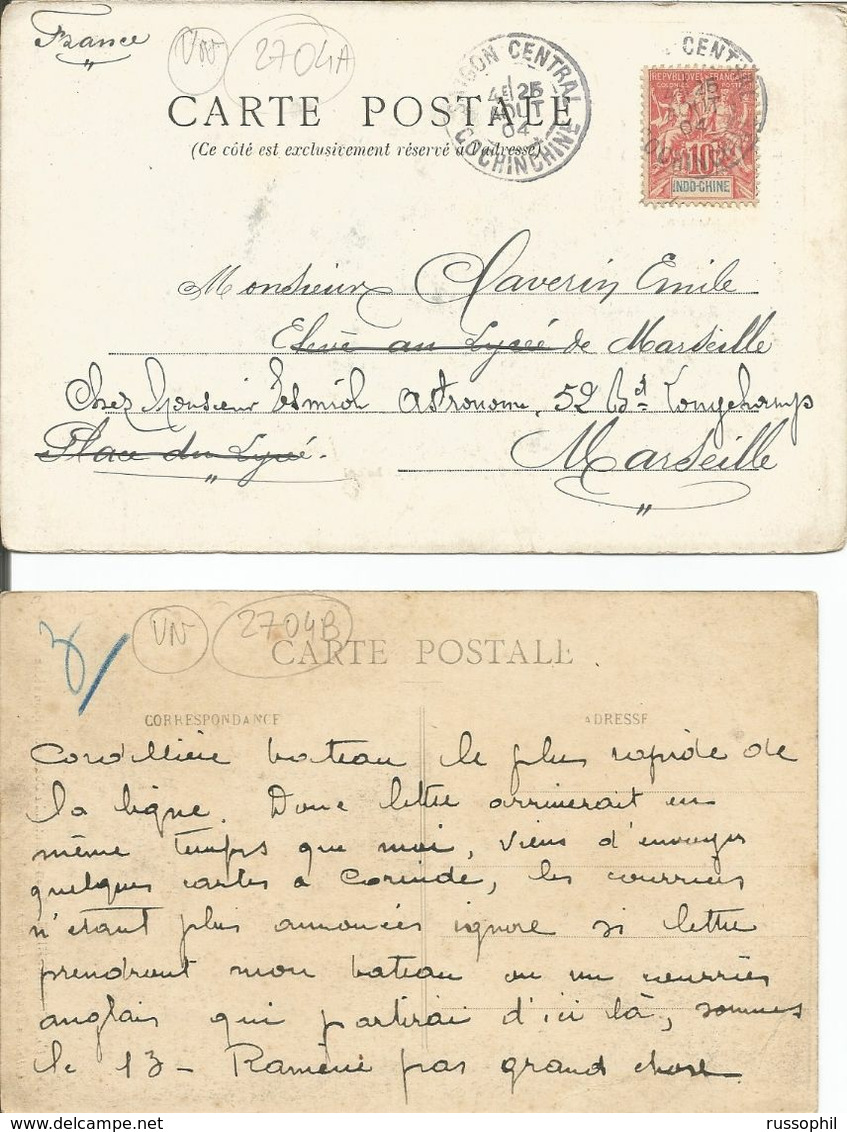 France
VN
2704A
CARTE POSTALE
(Ce côté est exclusivement réservé à l'adresse)
SAIGON CENTRAL
4E 25
AOUT
04
COCHINCHINE
CENT
25
AOUT
04
REPUBLIQUE FRANÇAISE
COLONIES POSTES
10
INDO-CHINE
Monsieur Claverin Emile
Elevé au Lycée de Marseille
Chez Monsieur Esmiol astronome, 52 Bd Longchamps
Place du Lycée.
Marseille
VN
2704B
CARTE POSTALE
CORRESPONDANCE
ADRESSE
Cordillière bateau le plus rapide de
la ligne. Donc lettre arriverait en
même temps que moi, viens d'envoyer
quelques cartes à Corinde, les courriers
n'étant plus annoncés ignore si lettre
prendront mon bateau ou un courrier
anglais qui partirai d'ici là, sommes
le 13 - Ramène pas grand chose
russophil